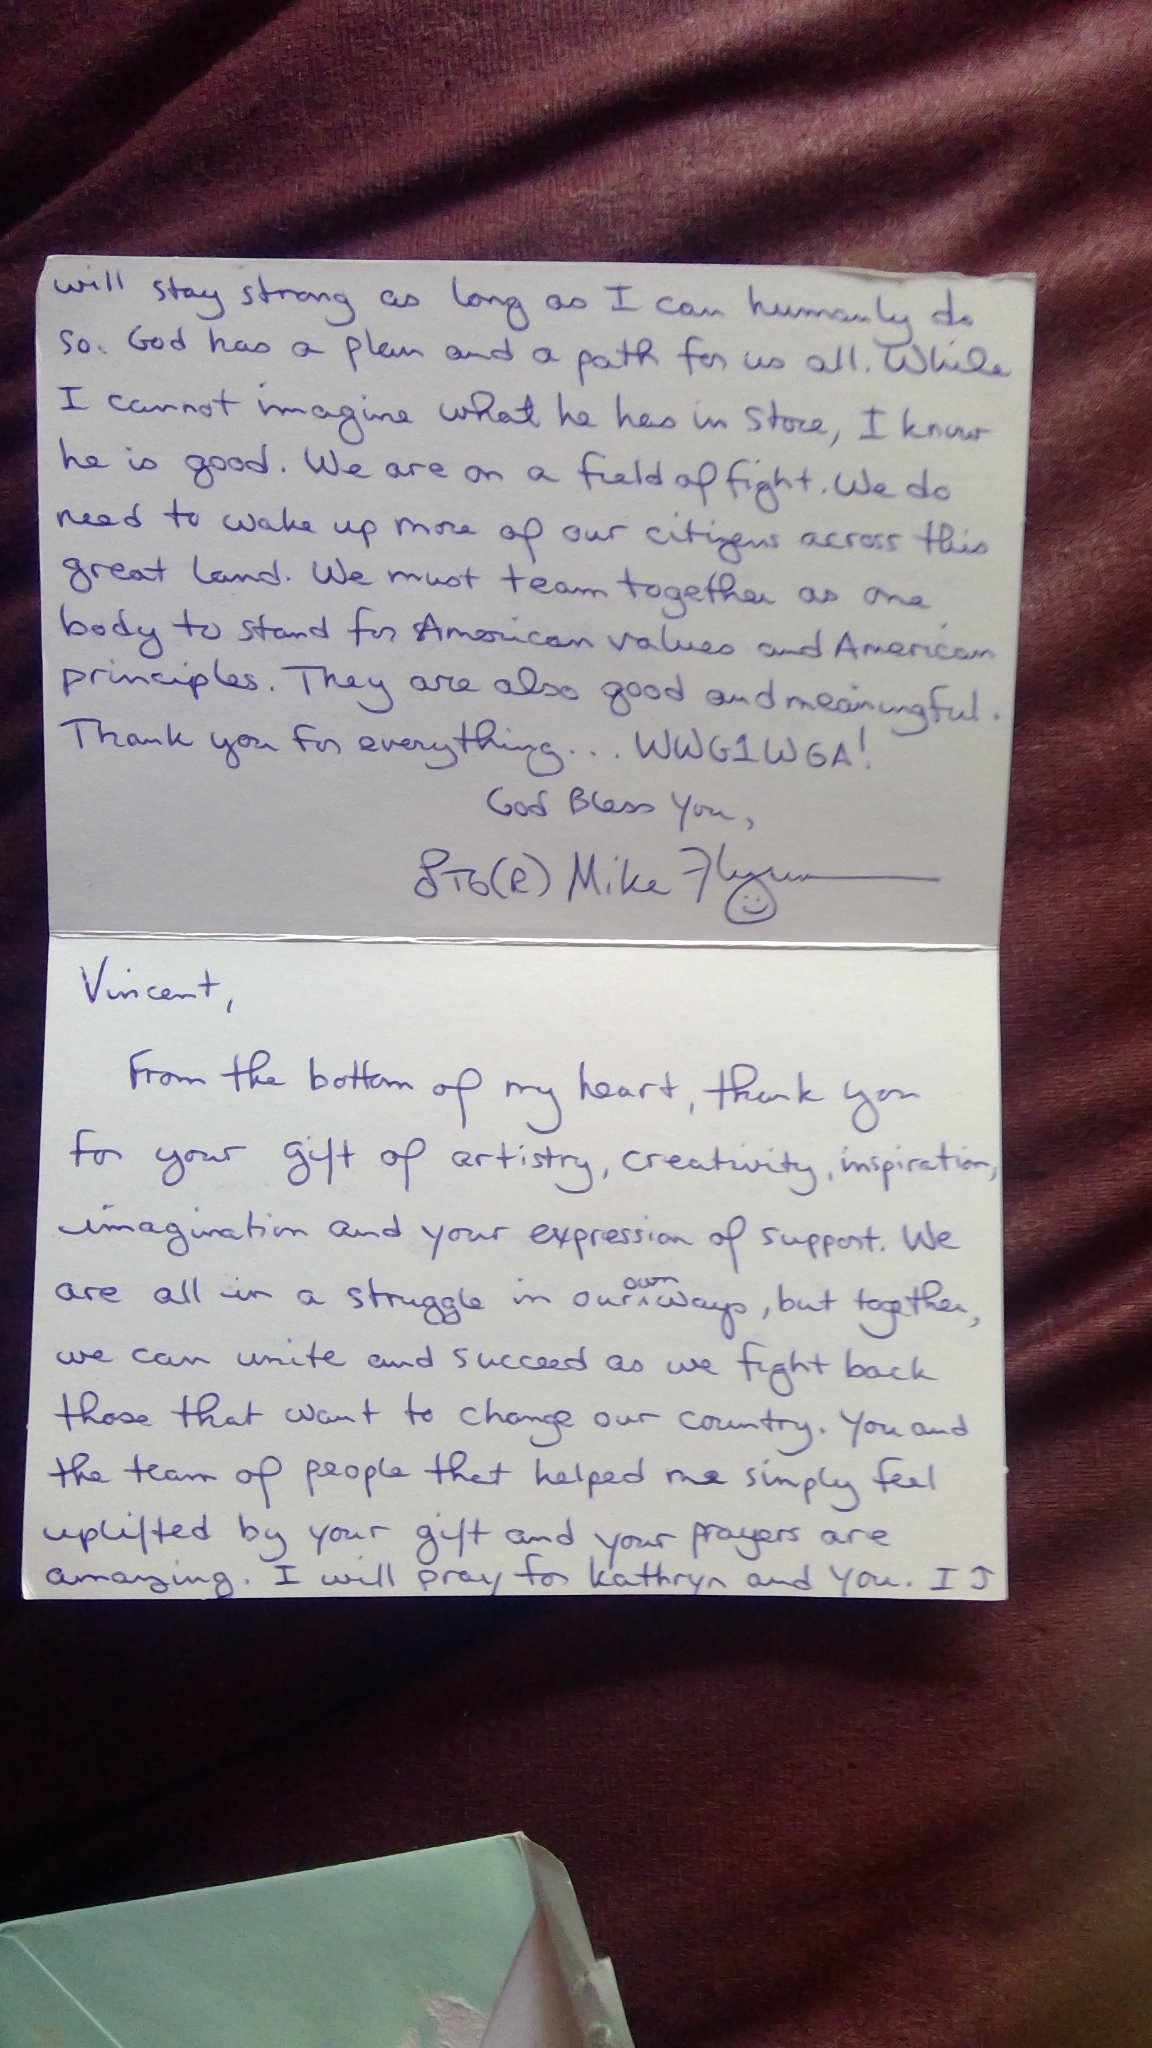 will stay strong as long as I can humanly do
so. God has a plan and a path for us all. While
I cannot imagine what he has in store, I know
he is good. We are on a field of fight. We do
need to wake up more of our citizens across this
great land. We must team together as one
body to stand for American values and American
principles. They are also good and meaningful.
Thank you for everything... WWG1WGA!
God Bless You,
LTG(R) Mike Flynn
Vincent,
From the bottom of my heart, thank you
for your gift of artistry, creativity, inspiration,
imagination and your expression of support. We
are all in a struggle in our own ways, but together,
we can unite and succeed as we fight back
those that want to change our country. You and
the team of people that helped me simply feel
uplifted by your gift and your prayers are
amazing. I will pray for Kathryn and you. I J